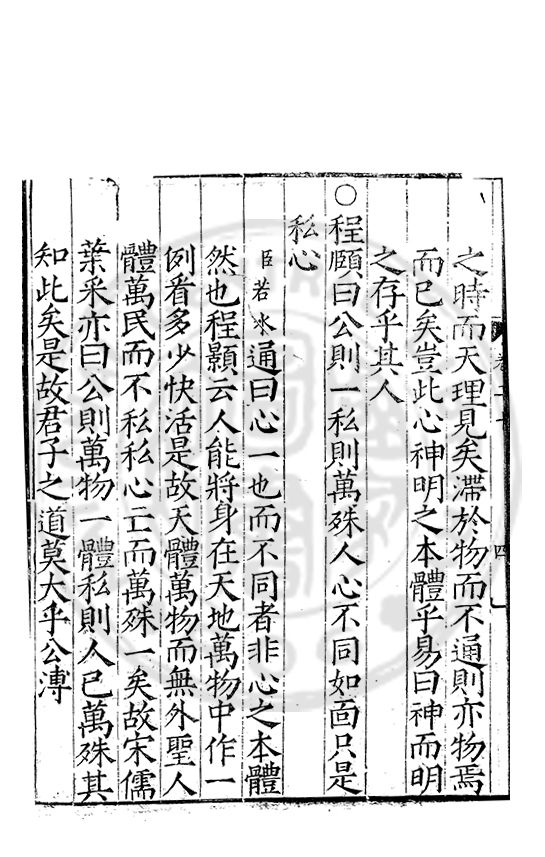 之時而天理見矣滯於物而不通則亦物焉
而已矣豈此心神明之本體乎易曰神而明
之存乎其人
○程頤曰公則一私則萬殊人心不同如面只是
私心
臣若水通曰心一也而不同者非心之本體
然也程顥云人能將身在天地萬物中作一
例看多少快活是故天體萬物而無外聖人
體萬民而不私私心亡而萬殊一矣故宋儒
葉采亦曰公則萬物一體私則人已萬殊其
知此矣是故君子之道莫大乎公溥